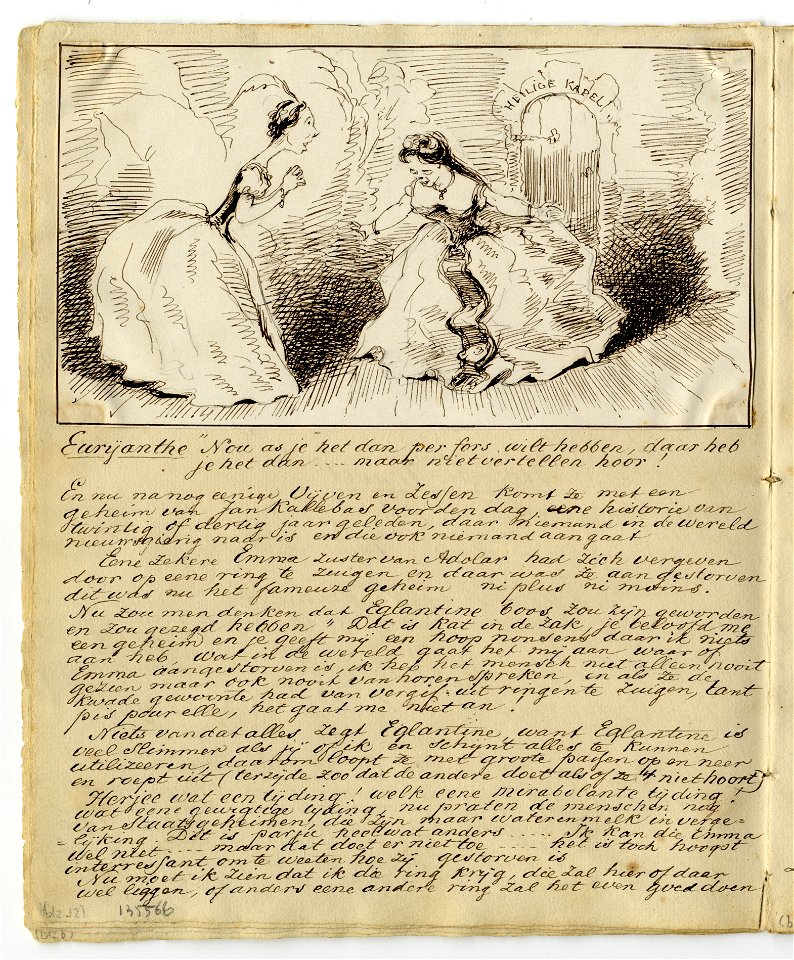 "HEILIGE KAPEL"
Eurijanthe "Nou as je het dan per fors wilt hebben, daar heb
je het dan .... maar niet vertellen hoor!
En nu na nog eenige Vijven en Zessen komt ze met een
geheim van Jan Kallebas voor den dag, eene historie van
twintig of dertig jaar geleden, daar niemand in de wereld
nieuwsgierig naar is en die ook niemand aangaat
Eene zekere Emma zuster van Adolar had zich vergeven
door op eene ring te zuigen en daar was ze aan gestorven
dit was nu het fameuze geheim ni plus ni moins.
Nu zou men denken dat Eglantine boos zou zijn geworden
en zou gezegd hebben "Dat is kat in de zak, je beloofd me
een geheim en je geeft mij een hoop nonsens daar ik niets
aan heb, wat in de wereld gaat het mij aan waar of
Emma aangestorven is, ik heb het mensch niet alleen nooit
gezien maar ook nooit van horen spreken, in als ze de
kwade gewoonte had van vergif uit ringen te zuigen, tant
pis pour elle, het gaat me niet an!
Niets van dat alles, zegt Eglantine, want Eglantine is
veel slimmer als jij of ik en schijnt alles te kunnen
utilizeeren, daarom loopt ze met groote passen op en neer
en roept uit (terzijde zoo dat de andere doet als of ze 't niet hoort)
"Herjee wat een tijding! welk eene mirabolante tijding!
wat eene gewigtige tijding, nu praten de menschen nog
van Staatsgeheimen, die zijn maar water in melk in verge=
=lijking. Dit is parjú heel wat anders ..... Ik kan die Emma
wel niet .... maar dat doet er niet toe .... het is toch hoogst
interressant om te weeten hoe zij gestorven is
Nu moet ik zien dat ik die ring krijg, die zal hier of daar
wel liggen, of anders eene andere ring zal het even goed doen
(blz 12) 135566